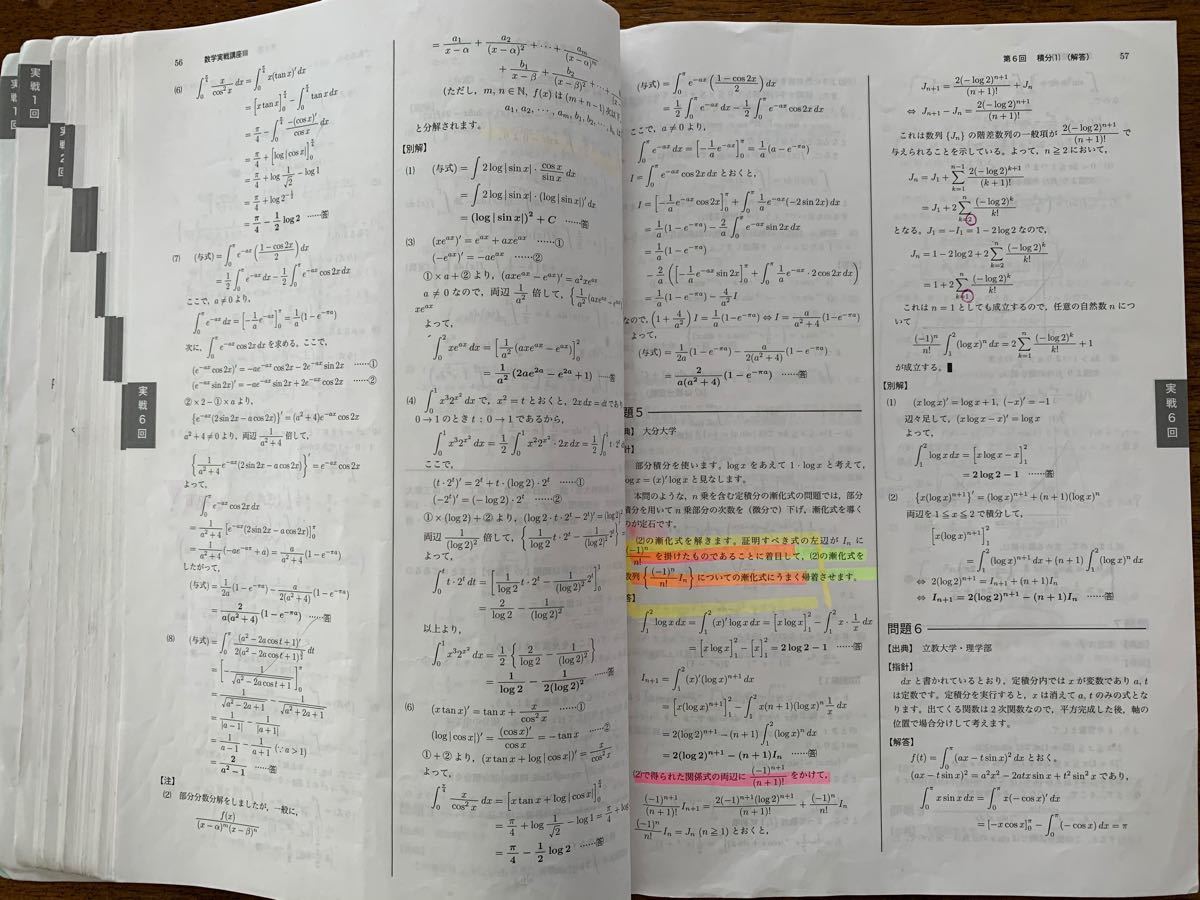 56 数学実戦講座Ⅲ
(6) ∫₀^{π/4} x/cos²x dx = ∫₀^{π/4} x(tan x)' dx
= [x tan x]₀^{π/4} − ∫₀^{π/4} tan x dx
= π/4 − ∫₀^{π/4} −(cos x)'/cos x dx
= π/4 + [log|cos x|]₀^{π/4}
= π/4 + log 1/√2 − log 1
= π/4 + log 2⁻¹
= π/4 − 1/2 log 2 ……答
(7) (与式) = ∫₀^π e^{−ax}((1−cos 2x)/2) dx
= 1/2 ∫₀^π e^{−ax} dx − 1/2 ∫₀^π e^{−ax} cos 2x dx
ここで, a≠0 より,
∫₀^π e^{−ax} dx = [−1/a e^{−ax}]₀^π = 1/a (1−e^{−πa})
次に, ∫₀^π e^{−ax} cos 2x dx を求める. ここで,
(e^{−ax} cos 2x)' = −ae^{−ax} cos 2x − 2e^{−ax} sin 2x ……①
(e^{−ax} sin 2x)' = −ae^{−ax} sin 2x + 2e^{−ax} cos 2x ……②
②×2−①×a より,
{e^{−ax}(2 sin 2x − a cos 2x)}' = (a²+4)e^{−ax} cos 2x
a²+4≠0 より, 両辺 1/(a²+4) 倍して,
{1/(a²+4) e^{−ax}(2 sin 2x − a cos 2x)}' = e^{−ax} cos 2x
よって,
∫₀^π e^{−ax} cos 2x dx
= 1/(a²+4) [e^{−ax}(2 sin 2x − a cos 2x)]₀^π
= 1/(a²+4) (−ae^{−πa} + a) = a/(a²+4) (1−e^{−πa})
したがって,
(与式) = 1/2a (1−e^{−πa}) − a/2(a²+4) (1−e^{−πa})
= 2/a(a²+4) (1−e^{−πa}) ……答
(8) (与式) = ∫₀^π (a²−2a cos t+1)'/2(a²−2a cos t+1)^{3/2} dt
= [−1/√(a²−2a cos t+1)]₀^π
= 1/√(a²−2a+1) − 1/√(a²+2a+1)
= 1/|a−1| − 1/|a+1|
= 1/(a−1) − 1/(a+1) (∵ a>1)
= 2/(a²−1) ……答
【注】
(2) 部分分数分解をしましたが, 一般に,
f(x)/(x−α)^m(x−β)^n
= a₁/(x−α) + a₂/(x−α)² + ⋯ + a_m/(x−α)^m
+ b₁/(x−β) + b₂/(x−β)² + ⋯
(ただし, m, n∈N, f(x) は (m+n−1) 次以下
a₁, a₂, ⋯, a_m, b₁, b₂, ⋯, b_n は
と分解されます.
【別解】
(1) (与式) = ∫ 2 log|sin x| · cos x/sin x dx
= ∫ 2 log|sin x| · (log|sin x|)' dx
= (log|sin x|)² + C ……答
(3) (xe^{ax})' = e^{ax} + axe^{ax} ……①
(−e^{ax})' = −ae^{ax} ……②
①×a+② より, (axe^{ax} − e^{ax})' = a²xe^{ax}
a≠0 なので, 両辺 1/a² 倍して, {1/a² (axe^{ax}
xe^{ax}
よって,
∫₀² xe^{ax} dx = [1/a² (axe^{ax} − e^{ax})]₀²
= 1/a² (2ae^{2a} − e^{2a} + 1) ……答
(4) ∫₀¹ x³2^{x²} dx で, x²=t とおくと, 2x dx=dt であり
0→1 のとき t:0→1 であるから,
∫₀¹ x³2^{x²} dx = 1/2 ∫₀¹ x²2^{x²} · 2x dx = 1/2 ∫₀¹ t·2^t
ここで,
(t·2^t)' = 2^t + t·(log 2)·2^t ……①
(−2^t)' = (−log 2)·2^t ……②
①×(log 2)+② より, (log 2·t·2^t − 2^t)' = (log 2)²
両辺 1/(log 2)² 倍して, {1/log 2 t·2^t − 1/(log 2)² 2^t
よって,
∫₀¹ t·2^t dt = [1/log 2 t·2^t − 1/(log 2)² 2^t]₀¹
= 2/log 2 − 1/(log 2)²
以上より,
∫₀¹ x³2^{x²} dx = 1/2 {2/log 2 − 1/(log 2)²}
= 1/log 2 − 1/2(log 2)² ……答
(6) (x tan x)' = tan x + x/cos²x ……①
(log|cos x|)' = (cos x)'/cos x = −tan x ……②
①+② より, (x tan x + log|cos x|)' = x/cos²x
よって,
∫₀^{π/4} x/cos²x dx = [x tan x + log|cos x|]₀^{π/4}
= π/4 + log 1/√2 − log 1 = π/4 + log
= π/4 − 1/2 log 2 ……答
第6回 積分(1) (解答) 57
(与式) = ∫₀^π e^{−ax}((1−cos 2x)/2) dx
= 1/2 ∫₀^π e^{−ax} dx − 1/2 ∫₀^π e^{−ax} cos 2x dx
ここで, a≠0 より,
∫₀^π e^{−ax} dx = [−1/a e^{−ax}]₀^π = 1/a (1−e^{−πa})
I = ∫₀^π e^{−ax} cos 2x dx とおくと,
I = [−1/a e^{−ax} cos 2x]₀^π + ∫₀^π 1/a e^{−ax}(−2 sin 2x) dx
= 1/a (1−e^{−πa}) − 2/a ∫₀^π e^{−ax} sin 2x dx
= 1/a (1−e^{−πa})
− 2/a ([−1/a e^{−ax} sin 2x]₀^π + ∫₀^π 1/a e^{−ax} · 2 cos 2x dx)
= 1/a (1−e^{−πa}) − 4/a² I
なので, (1+4/a²) I = 1/a (1−e^{−πa}) ⇔ I = a/(a²+4) (1−e^{−πa})
よって,
(与式) = 1/2a (1−e^{−πa}) − a/2(a²+4) (1−e^{−πa})
= 2/a(a²+4) (1−e^{−πa}) ……答
題5
典】 大分大学
針】
部分積分を使います. log x をあえて 1·log x と考えて,
log x = (x)' log x と見なします.
本問のような, n 乗を含む定積分の漸化式の問題では, 部分
積分を用いて n 乗部分の次数を (微分で) 下げ, 漸化式を導く
のが定石です.
(2)の漸化式を解きます. 証明すべき式の左辺が Iₙ に
(−1)ⁿ/n! を掛けたものであることに着目して, (2)の漸化式を
数列 {(−1)ⁿ/n! Iₙ} についての漸化式にうまく帰着させます.
答】
∫₁² log x dx = ∫₁² (x)' log x dx = [x log x]₁² − ∫₁² x · 1/x dx
= [x log x]₁² − [x]₁² = 2 log 2 − 1 ……答
Iₙ₊₁ = ∫₁² (x)'(log x)ⁿ⁺¹ dx
= [x(log x)ⁿ⁺¹]₁² − ∫₁² x(n+1)(log x)ⁿ 1/x dx
= 2(log 2)ⁿ⁺¹ − (n+1) ∫₁² (log x)ⁿ dx
= 2(log 2)ⁿ⁺¹ − (n+1)Iₙ ……答
(2)で得られた関係式の両辺に (−1)ⁿ⁺¹/(n+1)! をかけて,
(−1)ⁿ⁺¹/(n+1)! Iₙ₊₁ = 2(−1)ⁿ⁺¹(log 2)ⁿ⁺¹/(n+1)! + (−1)ⁿ/n! Iₙ
(−1)ⁿ/n! Iₙ = Jₙ (n≧1) とおくと,
Jₙ₊₁ = 2(−log 2)ⁿ⁺¹/(n+1)! + Jₙ
⇔ Jₙ₊₁ − Jₙ = 2(−log 2)ⁿ⁺¹/(n+1)!
これは数列 {Jₙ} の階差数列の一般項が 2(−log 2)ⁿ⁺¹/(n+1)! で
与えられることを示している. よって, n≧2 において,
Jₙ = J₁ + Σ_{k=1}^{n−1} 2(−log 2)^{k+1}/(k+1)!
= J₁ + 2Σ_{k=2}^{n} (−log 2)^k/k!
となる. J₁ = −I₁ = 1−2 log 2 なので,
Jₙ = 1 − 2 log 2 + 2Σ_{k=2}^{n} (−log 2)^k/k!
= 1 + 2Σ_{k=1}^{n} (−log 2)^k/k!
これは n=1 としても成立するので, 任意の自然数 n につ
いて
(−1)ⁿ/n! ∫₁² (log x)ⁿ dx = 2Σ_{k=1}^{n} (−log 2)^k/k! + 1
が成立する. ■
【別解】
(1) (x log x)' = log x + 1, (−x)' = −1
辺々足して, (x log x − x)' = log x
よって,
∫₁² log x dx = [x log x − x]₁²
= 2 log 2 − 1 ……答
(2) {x(log x)ⁿ⁺¹}' = (log x)ⁿ⁺¹ + (n+1)(log x)ⁿ
両辺を 1≦x≦2 で積分して,
[x(log x)ⁿ⁺¹]₁²
= ∫₁² (log x)ⁿ⁺¹ dx + (n+1) ∫₁² (log x)ⁿ dx
⇔ 2(log 2)ⁿ⁺¹ = Iₙ₊₁ + (n+1)Iₙ
⇔ Iₙ₊₁ = 2(log 2)ⁿ⁺¹ − (n+1)Iₙ ……答
問題6
【出典】 立教大学・理学部
【指針】
dx と書かれているとおり, 定積分内では x が変数であり a, t
は定数です. 定積分を実行すると, x は消えて a, t のみの式とな
ります. 出てくる関数は2次関数なので, 平方完成した後, 軸の
位置で場合分けして考えます.
【解答】
f(t) = ∫₀^π (ax − t sin x)² dx とおく.
(ax − t sin x)² = a²x² − 2atx sin x + t² sin² x であり,
∫₀^π x sin x dx = ∫₀^π x(−cos x)' dx
= [−x cos x]₀^π − ∫₀^π (−cos x) dx = π
実戦1回
実戦1回
実戦2回
実戦6回
実戦6回